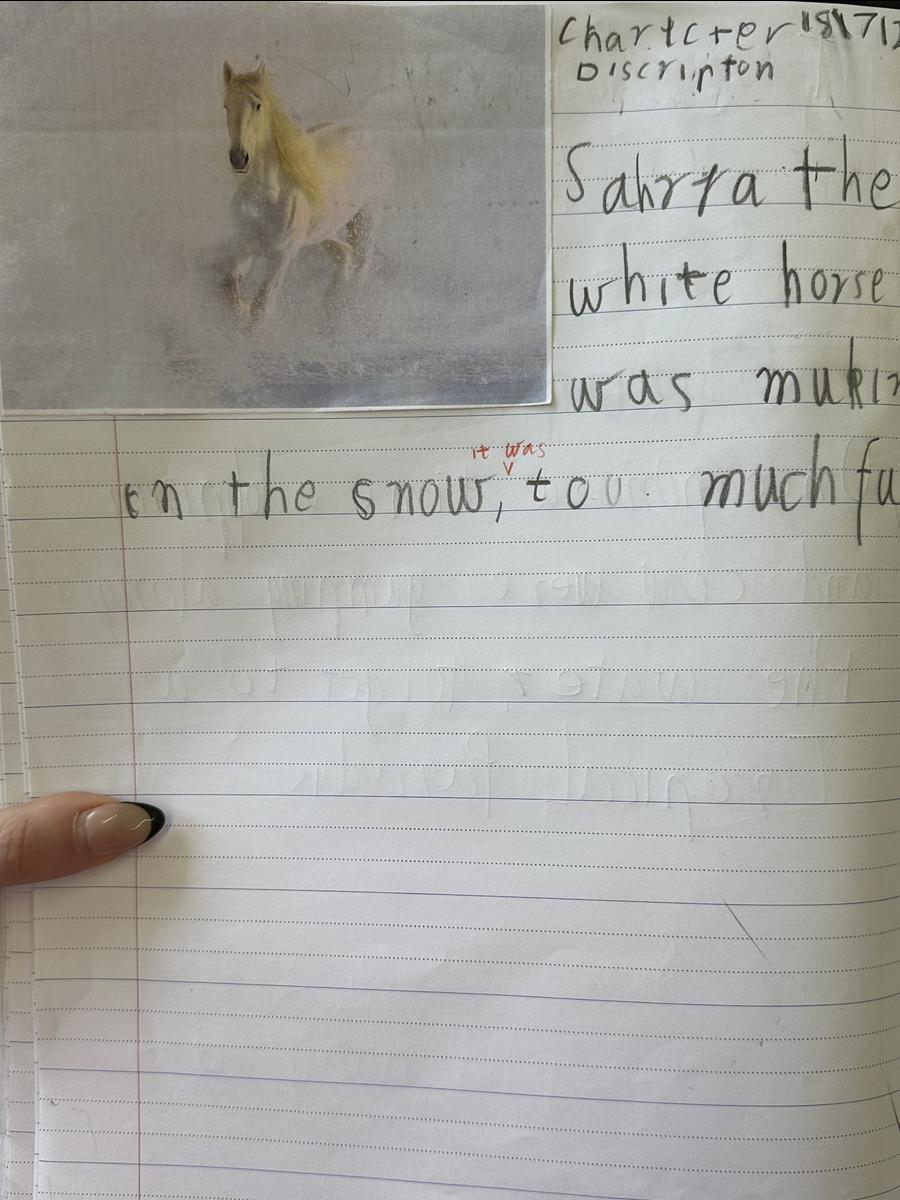 Chartcter 18\7\2
Discripton
Sahrra the
white horse
was mukin
in the snow, it was too much fu